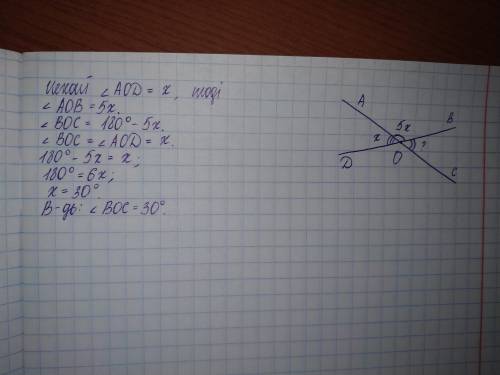 Нехай ∠AOD = x, тоді
∠AOB = 5x.
∠BOC = 180° - 5x.
∠BOC = ∠AOD = x.
180° - 5x = x;
180° = 6x;
x = 30°.
В-дь: ∠BOC = 30°.
A
B
5x
x
?
D
O
C